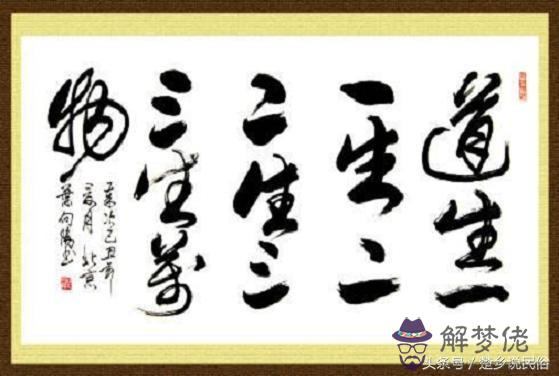 道生一
一生二
二生三
三生萬
物
歲次己丑年
月 北京
解梦佬
头条号 / 楚乡说民俗